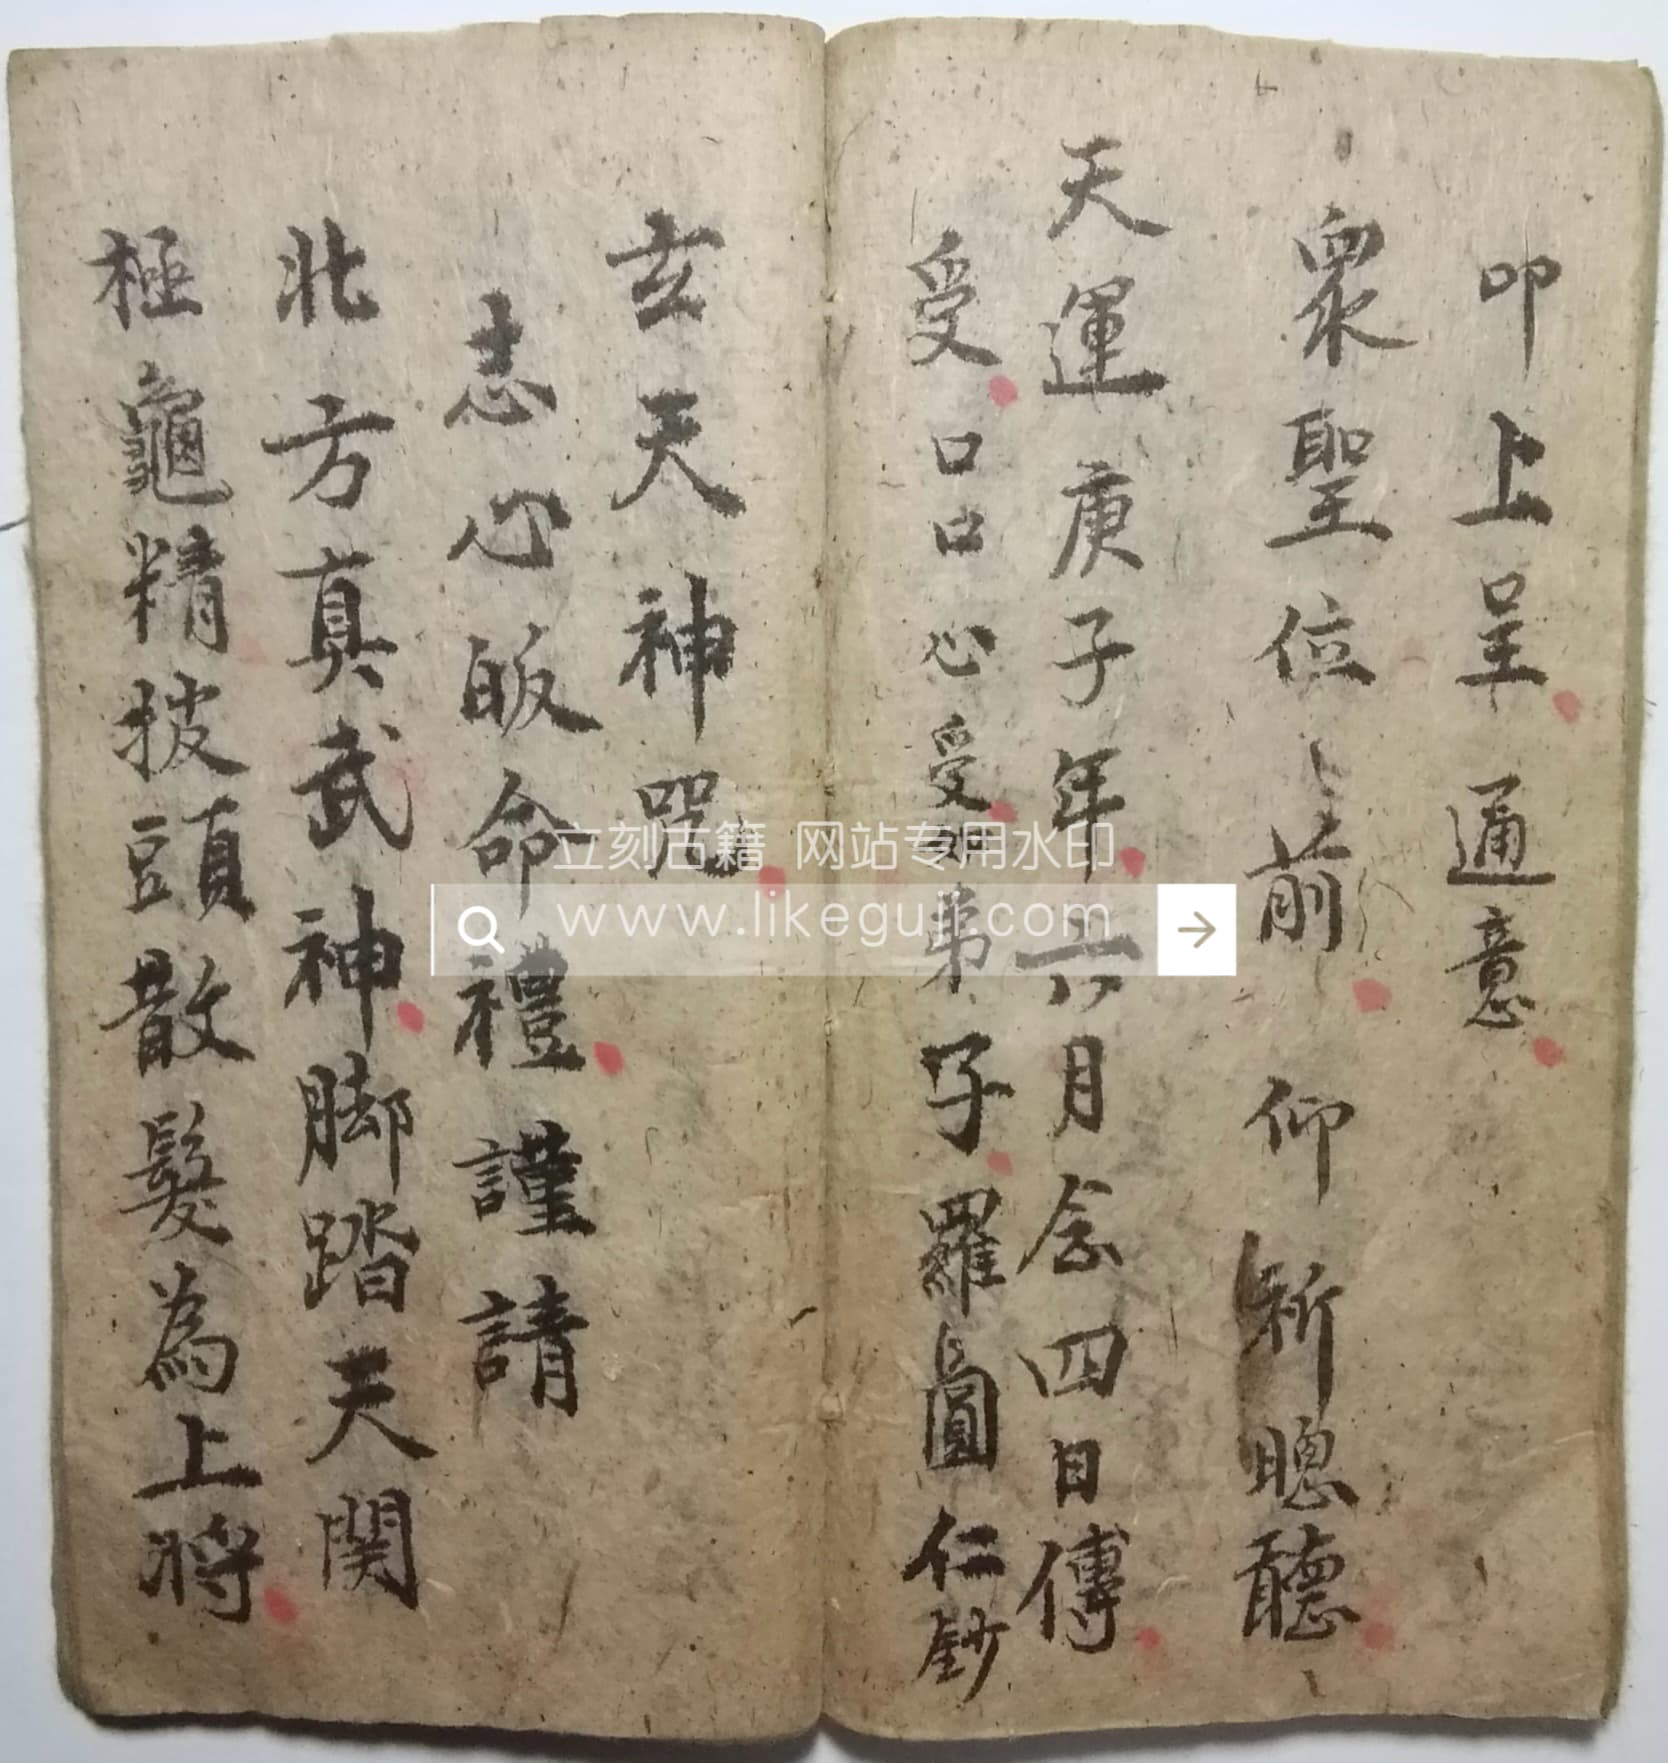 叩上呈通意
眾聖位前仰祈聰聽
天運庚子年六月念四日傳
受口口心受弟子羅圓仁鈔
玄天神咒
志心皈命禮謹請
北方真武神神脚踏天関
極龜精披頭散髮為上將
立刻古籍 网站专用水印
www.likeguji.com